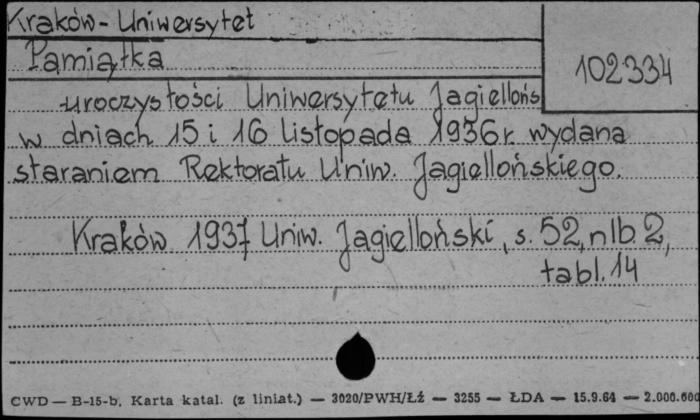 Kraków - Uniwersytet
102334
Pamiątka
uroczystości Uniwersytetu Jagiellońs
w dniach 15 i 16 listopada 1936 r. wydana
staraniem Rektoratu Uniw. Jagiellońskiego.
Kraków 1937 Uniw. Jagielloński, s. 52, nlb. 2,
tabl. 14
CWD — B-15-b. Karta katal. (z liniat.) — 3020/PWH/Łź — 3255 — ŁDA — 15.9.64 — 2.000.000